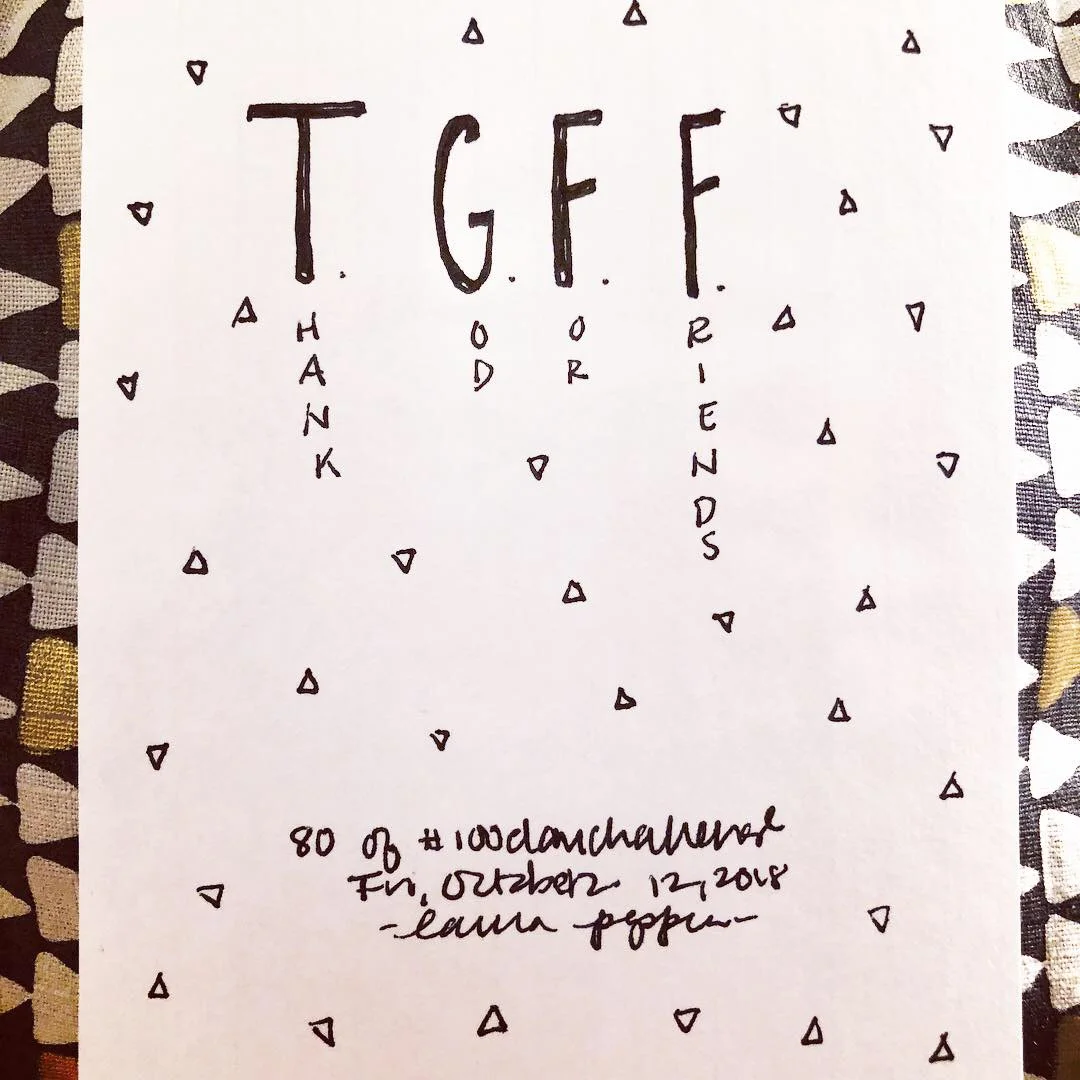 T. G. F. F.
HANK
OD
OR
RIENDS
80 of #100daychallenge
Fri, October 12, 2018
-laura pepper-